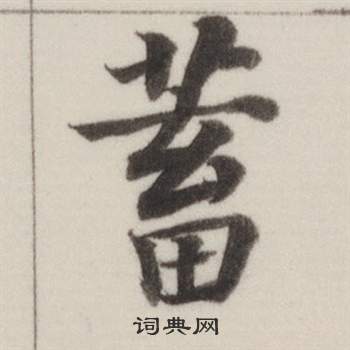 蓄
词典网